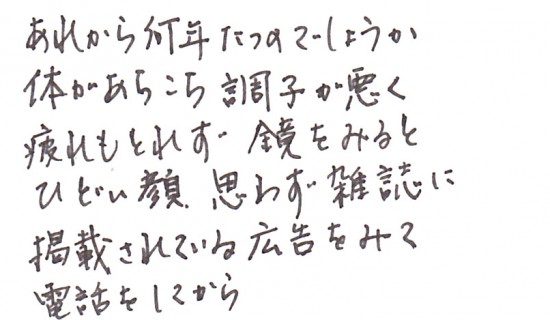 あれから何年たつのでしょうか
体があちこち調子が悪く
疲れもとれず 鏡をみると
ひどい顔 思わず雑誌に
掲載されている広告をみて
電話をしてから